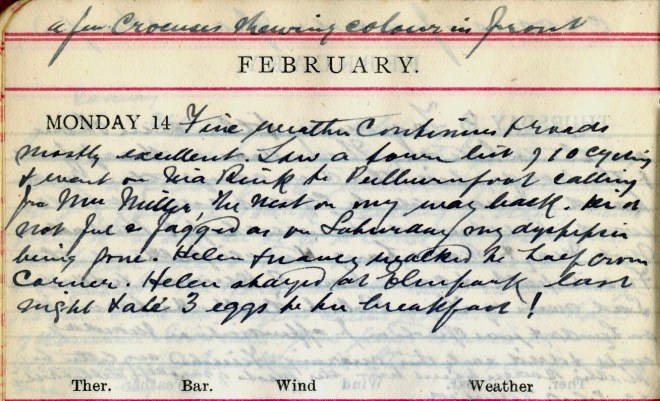 a few Crocuses shewing colour in front
FEBRUARY.
MONDAY 14 Fine weather continues & roads
mostly excellent. Saw a town list of 10 cycling
& went on via Kirk to calling
for Mrs Miller, The Nest on my way back. Did
not feel so fagged as on Saturday my dyspepsia
being gone. Helen & Nancy walked to half crown
corner. Helen stayed at Elmpark last
night & ate 3 eggs to her breakfast!
Ther. Bar. Wind Weather